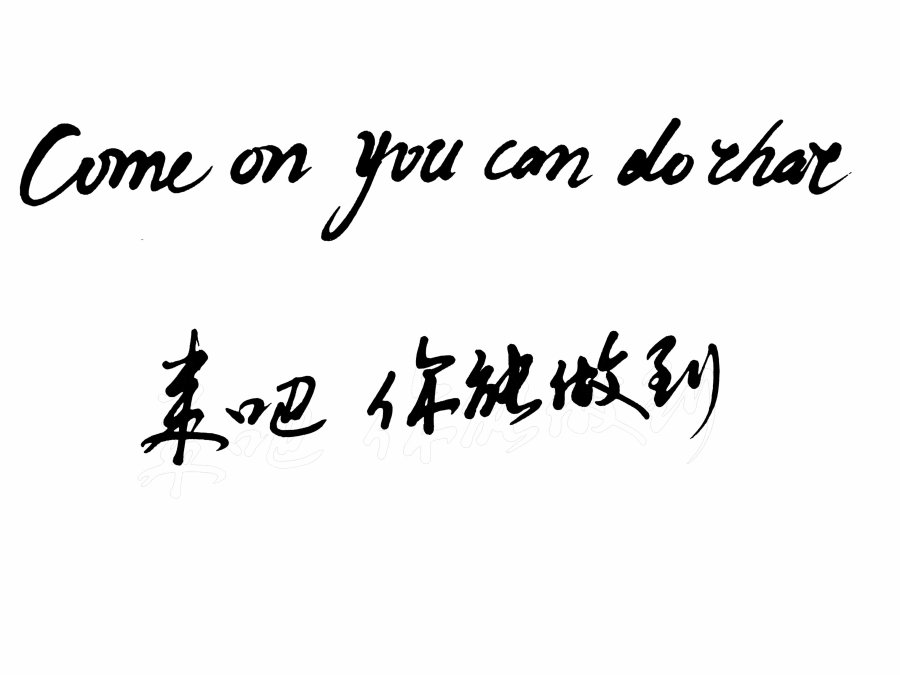 Come on you can do that
来吧 你能做到